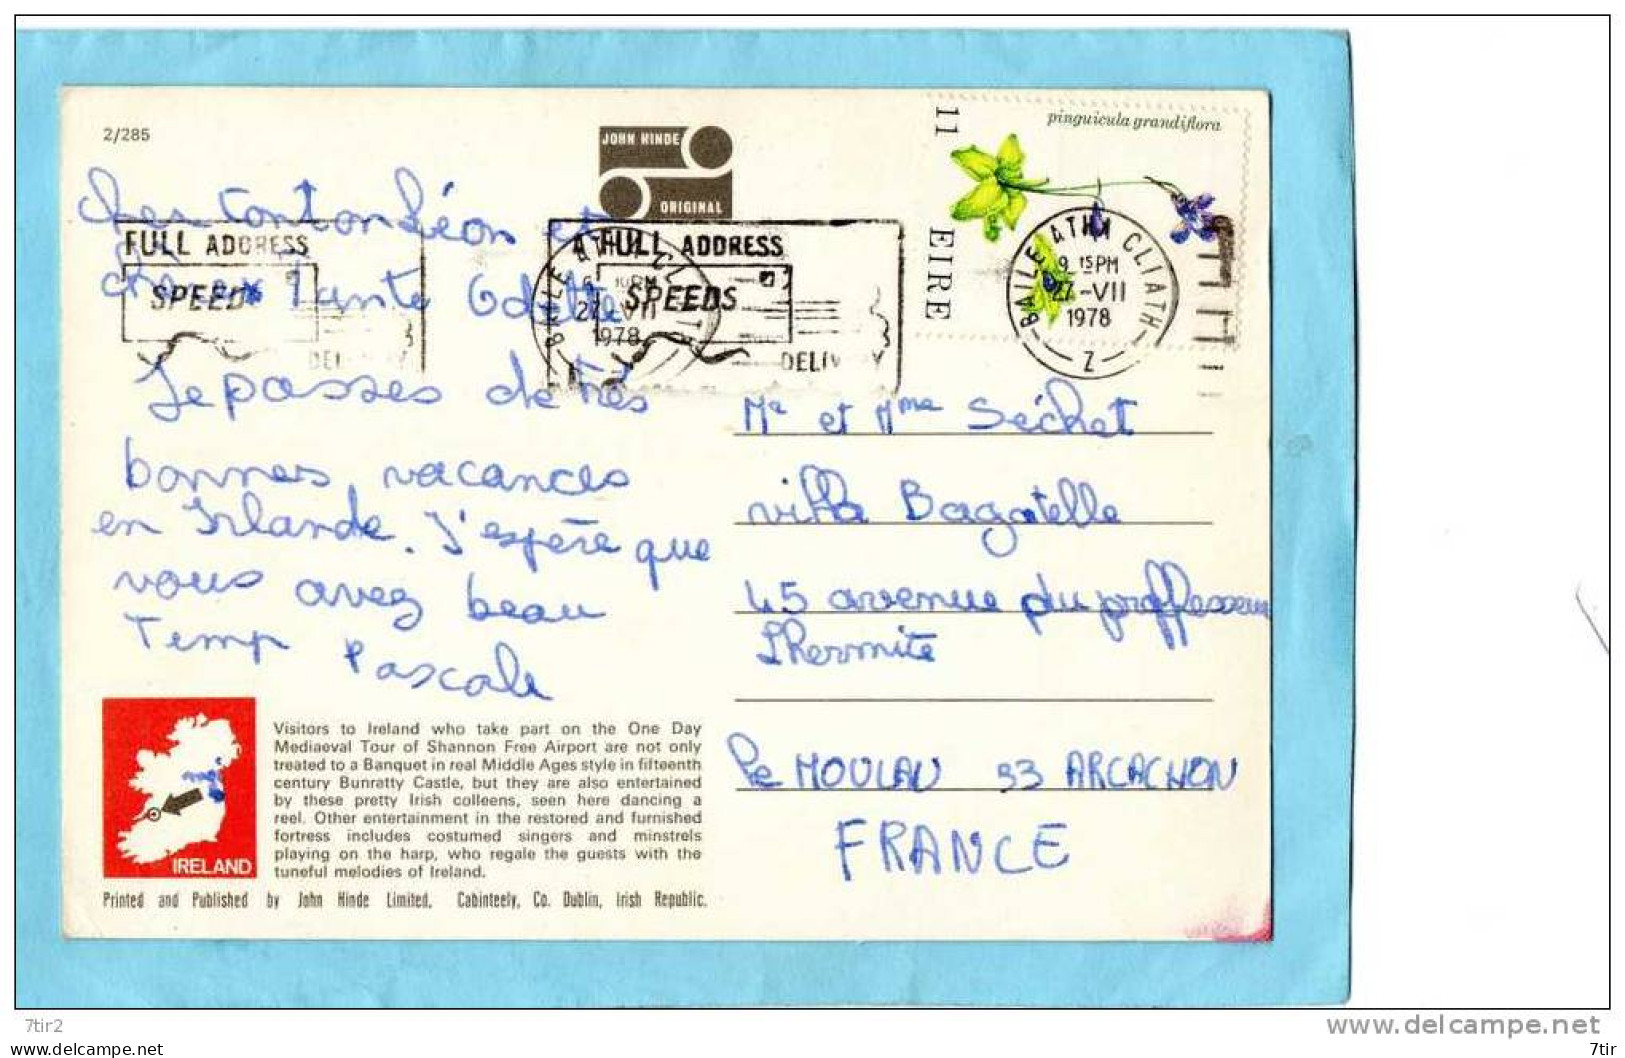 2/285
JOHN HINDE
ORIGINAL
11
EIRE
pinguicula grandiflora
FULL ADDRESS
SPEEDS
DELIVERY
FULL ADDRESS
SPEEDS
DELIVERY
BAILE ATHA CLIATH
27 VII
1978
BAILE ATHA CLIATH
9 15 PM
27-VII
1978
Z
Cher Tonton Léon et
chère Tante Odette
Je passes de très
bonnes vacances
en Irlande. J'espère que
vous avez beau
Temp Pascale
Mr et Mme Séchet
villa Bagatelle
45 avenue du proffesseur
Lhermite
Le MOULAU 33 ARCACHON
FRANCE
IRELAND
Visitors to Ireland who take part on the One Day
Mediaeval Tour of Shannon Free Airport are not only
treated to a Banquet in real Middle Ages style in fifteenth
century Bunratty Castle, but they are also entertained
by these pretty Irish colleens, seen here dancing a
reel. Other entertainment in the restored and furnished
fortress includes costumed singers and minstrels
playing on the harp, who regale the guests with the
tuneful melodies of Ireland.
Printed and Published by John Hinde Limited, Cabinteely, Co. Dublin, Irish Republic.
7tir2
www.delcampe.net
7tir
www.delcampe.net
7tir